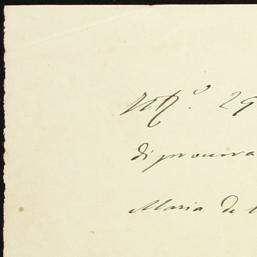 29
di procura
Maria de